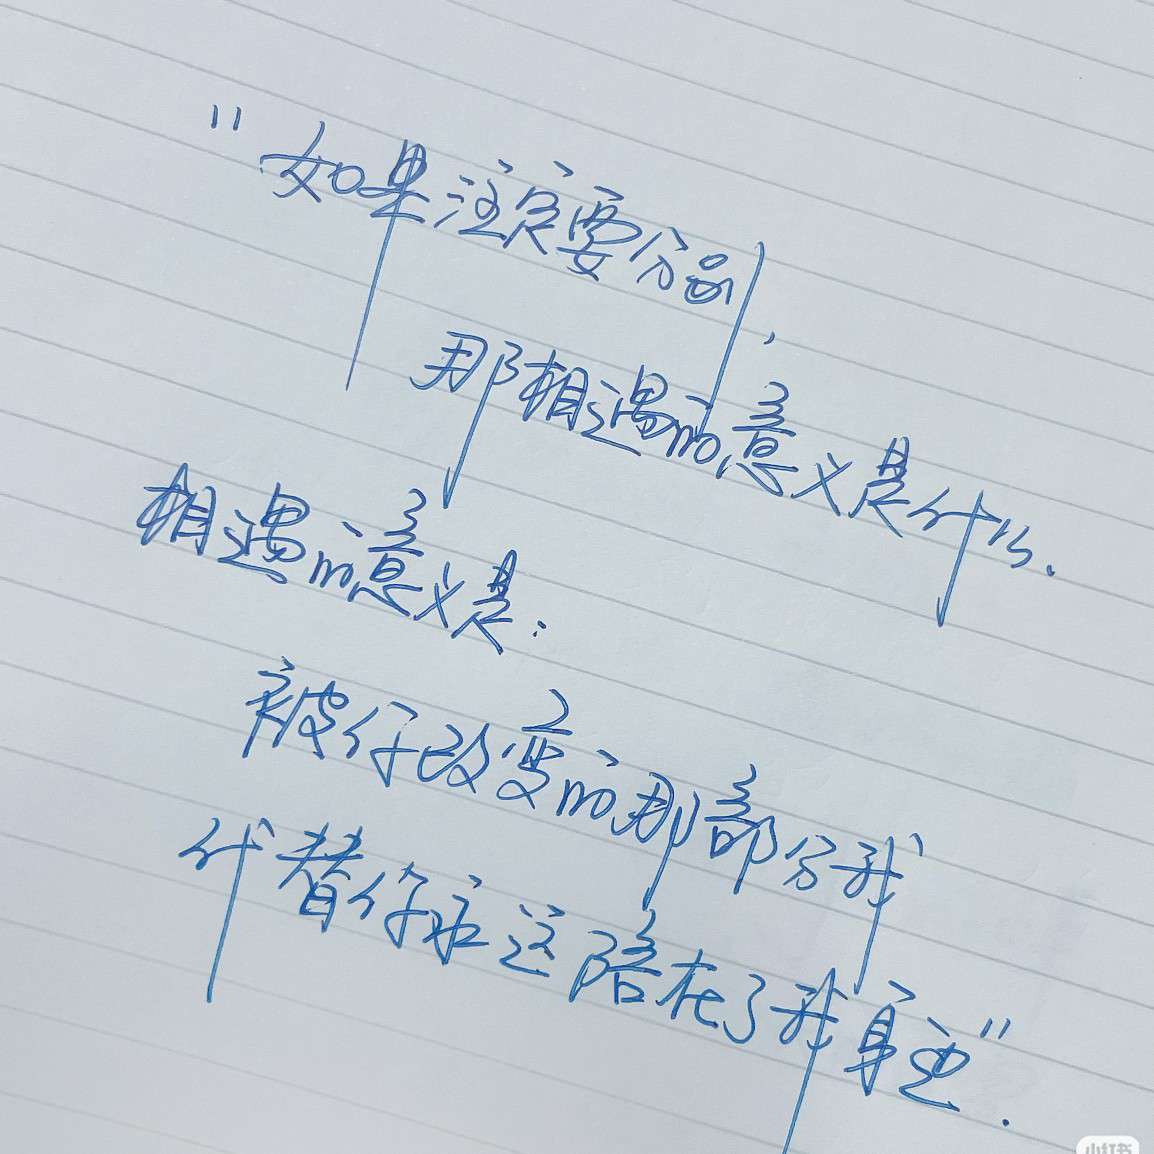 "如果注定要分别,
那相遇的意义是什么.
相遇的意义是:
被你改变的那部分我
代替你永远陪在了我身边".
小红书